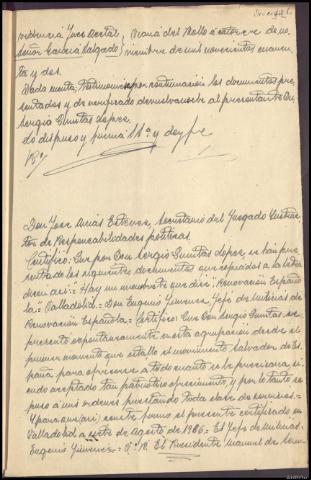 Providencia Juez Dental
Señor García Salgado
Viana del Bollo a catorce de no-
viembre de mil novecientos cuaren-
ta y dos.
Dada cuenta, testimoniese por continuación los documentos pre-
sentados y de verificado devuelvanse al presentante Don
Sergio Quintas
do dispuso y firma Sª y doy fe
Don Jose Arias Estevez, Secretario del Juzgado Instruc-
tor de Responsabilidades politicas.
Certifico: Que por Don Sergio Quintas se han pre-
sentado los siguientes documentos que copiados a la letra
dicen asi: = Hay un membrete que dice: Renovación Españo-
la = Valladolid = Don Eugenio Jimenez, Jefe de Milicias de
Renovación Española = Certifico: Que Don Sergio Quintas se
presento espontaneamente en esta agrupación desde el
primer momento que estallo el movimiento salvador de Es-
paña para ofrecerse a todo cuanto se le precisara si-
endo aceptado tan patriotico ofrecimiento, y por lo tanto se
puso a mis ordenes prestando toda clase de servicios =
Y para que (asi) conste firmo el presente certificado en
Valladolid a siete de Agosto de 1936 = El Jefe de Milicias.
Eugenio Jimenez = Vº Bº El Presidente Manuel de